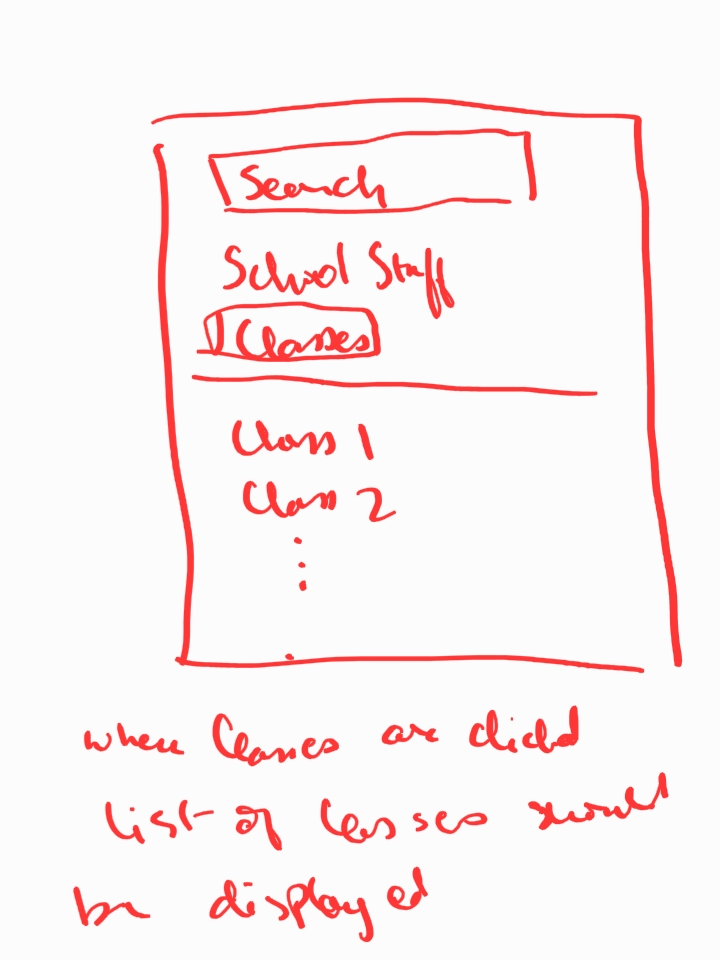 Search
School Staff
Classes
Class 1
Class 2
when Classes are clicked
list of classes should
be displayed